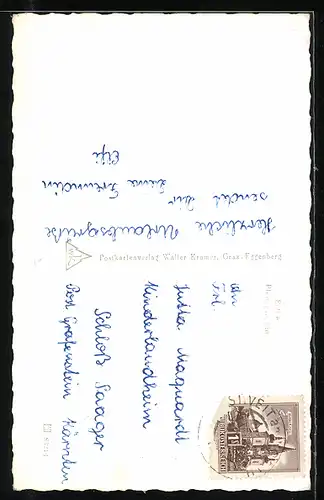 Herzliche Urlaubsgrüße
sendet Dir
Deine Freundin
Elfi
Postkartenverlag Walter Kramer, Graz-Eggenberg
An
Frl.
Jutta Maquardt
Kinderlandheim
Schloß Saager
Post Grafenstein Kärnten
ST. VEIT a.
REPUBLIK ÖSTERREICH